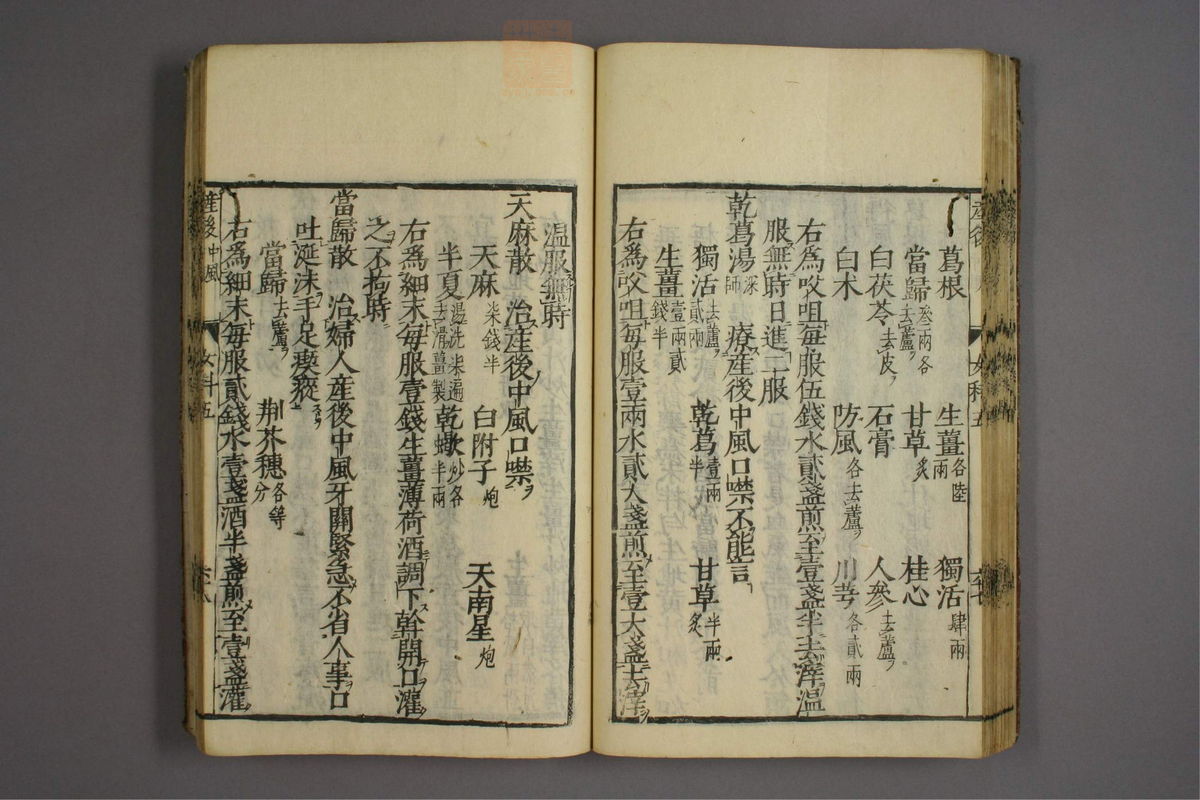 葛根 生薑各陸兩 獨活肆兩
當歸叁兩各去蘆 甘草炙 桂心
白茯苓去皮 石膏 人參去蘆
白朮 防風各去蘆 川芎各貳兩
右爲㕮咀每服伍錢水貳盞煎至壹盞半去滓温
服無時日進二服
乾葛湯深師 療産後中風口噤不能言
獨活去蘆貳兩 乾葛壹兩半 甘草炙半兩
生薑壹兩貳錢半
右爲㕮咀每服壹兩水貳大盞煎至壹大盞去滓
温服無時
天麻散 治産後中風口噤
天麻柒錢半 白附子炮 天南星炮
半夏湯洗柒遍去滑薑製 乾蝎炒各半兩
右爲細末每服壹錢生薑薄荷酒調下斡開口灌
之不拘時
當歸散 治婦人産後中風牙關緊急不省人事口
吐涎沫手足瘈瘲
當歸去蘆 荆芥穗各等分
右爲細末每服貳錢水壹盞酒半盞煎至壹盞灌
産後中風 女科五